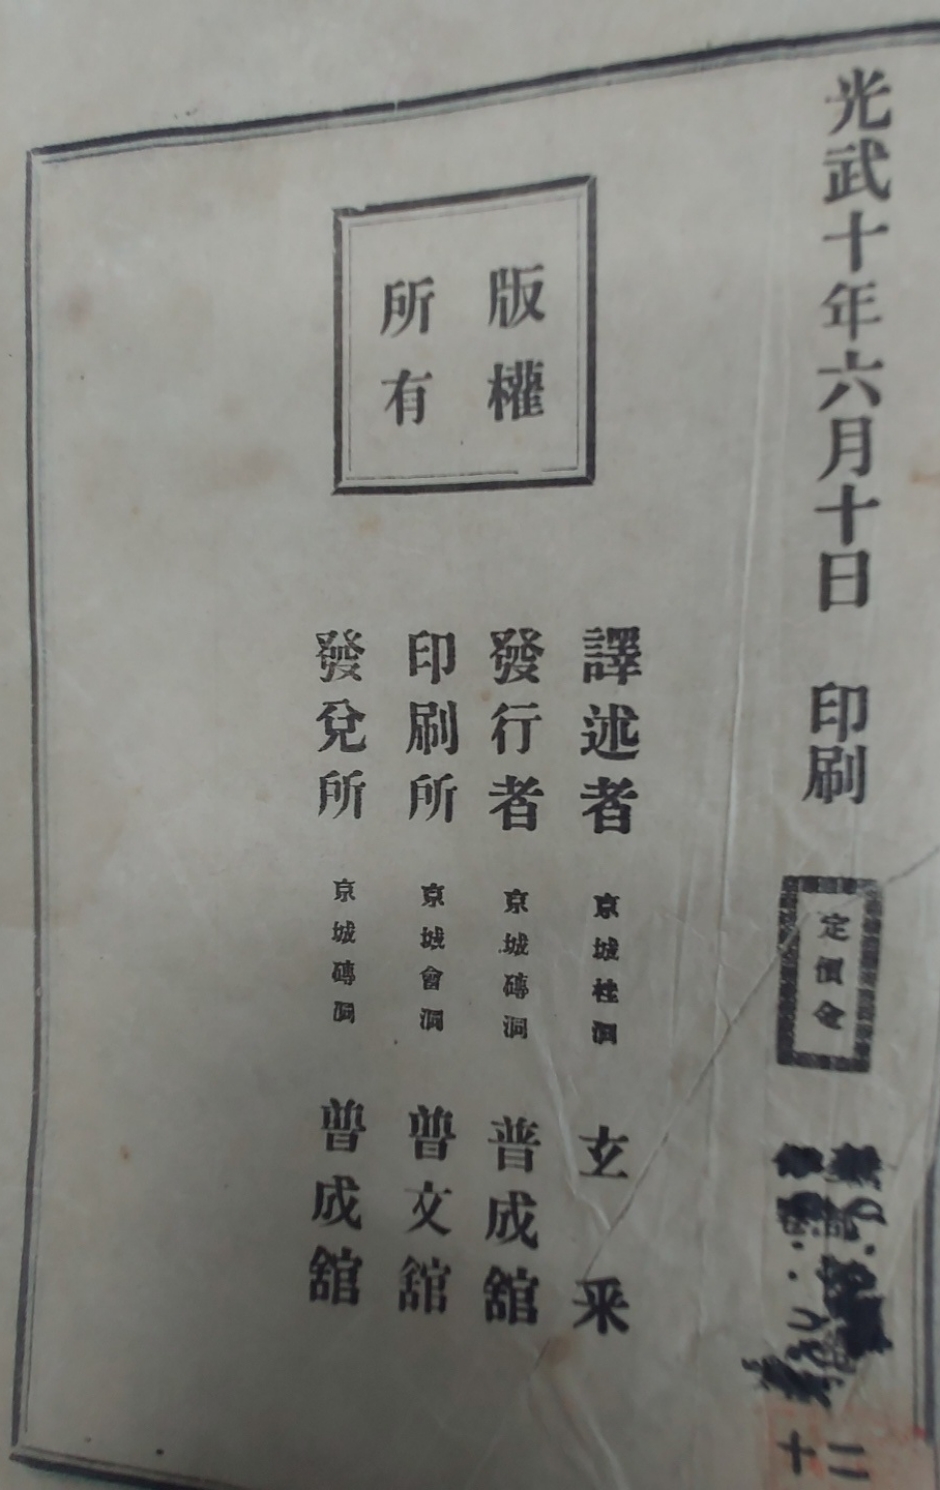 光武十年六月十日 印刷
定價金
版權
所有
譯述者 京城桂洞 玄采
發行者 京城磚洞 普成舘
印刷所 京城會洞 普文舘
發兌所 京城磚洞 普成舘